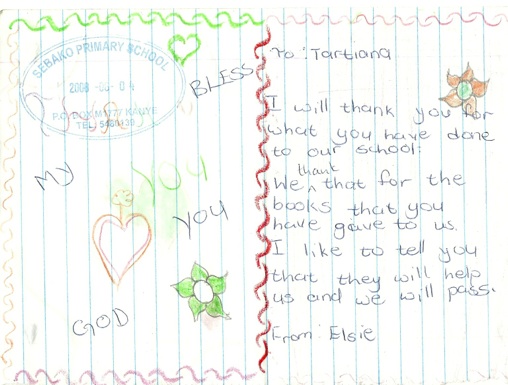 SEBAKO PRIMARY SCHOOL
BLESS
MY
YOU
YOU
GOD
To: Tartiana
I will thank you for
what you have done
to our school.
We thank that for the
books that you
have gave to us.
I like to tell you
that they will help
us and we will pass.
From: Elsie